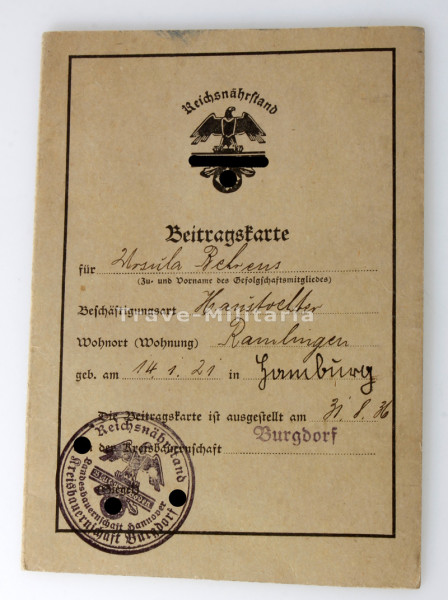 Reichsnährstand
Beitragskarte
für Ursula Behrens
(Zu- und Vorname des Gefolgschaftsmitgliedes)
Beschäftigungsart Haustochter
Trave-Militaria
Wohnort (Wohnung) Ramlingen
geb. am 14.1.21 in Hamburg
Die Beitragskarte ist ausgestellt am 31.8.36
der Kreisbauernschaft Burgdorf
Reichsnährstand
Siegel
Landesbauernschaft Hannover
Kreisbauernschaft Burgdorf